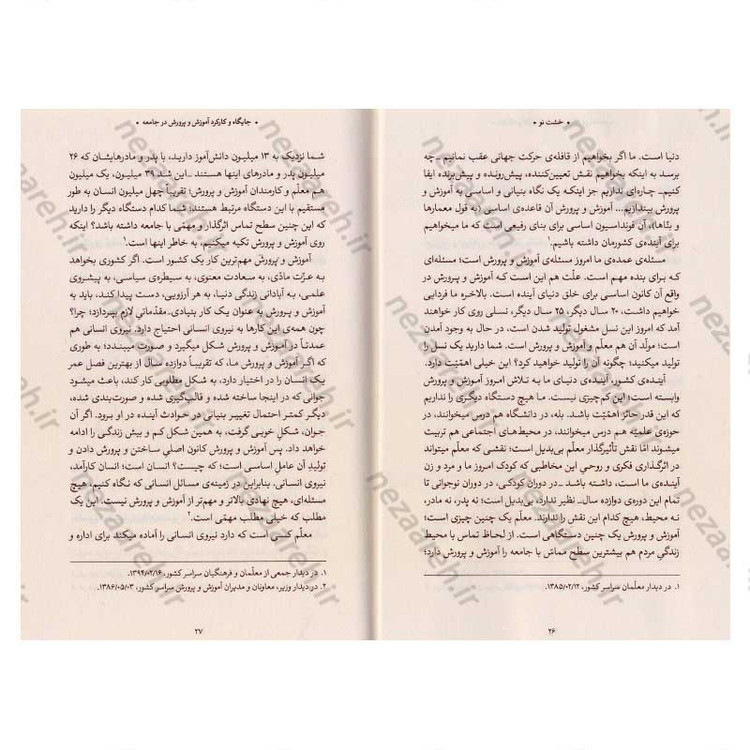 • خشت نو •
دنیا است. ما اگر بخواهیم از قافله‌ی حرکت جهانی عقب نمانیم ـ چه
برسد به اینکه بخواهیم نقش تعیین‌کننده، پیش‌رونده و پیش‌برنده ایفا
کنیم ـ چاره‌ای نداریم جز اینکه یک نگاه بنیانی و اساسی به آموزش و
پرورش بیندازیم... آموزش و پرورش آن قاعده‌ی اساسی (به قول معمارها
و بنّاها)، آن فونداسیون اساسی برای بنای رفیعی است که ما میخواهیم
برای آینده‌ی کشورمان داشته باشیم.۱
مسئله‌ی عمده‌ی ما امروز مسئله‌ی آموزش و پرورش است؛ مسئله‌ای
کـه برای بنده مهـم است. علّت هم این است کـه آموزش و پـرورش در
واقع آن کانون اساسی برای خلق دنیای آینده است. بالاخـره ما فردایی
خواهیم داشت، ۲۰ سال دیگر، ۲۵ سال دیگر، نسلی روی کار خواهند
آمد که امروز این نسل مشغول تولید شدن است، در حال به وجود آمدن
است؛ مولّد آن هم معلّم و آموزش و پرورش است. شما دارید یک نسل را
تولید میکنید؛ چگونه آن را تولید خواهید کرد؟ این خیلی اهمّیّت دارد.
آینـده‌ی کشور، آینده‌ی دنیـای مـا بـه تـلاش امروز آمـوزش و پـرورش
وابسته است؛ این کم‌چیزی نیست. ما هیچ دستگاه دیگـری را نداریم
که این قدر حائز اهمّیّت باشد. بله، در دانشگاه هم درس میخوانند، در
حوزه‌ی علمیّه هم درس میخوانند، در محیط‌های اجتماعی هم تربیت
میشوند امّا نقش تأثیرگذار معلّم بی‌بدیل است؛ نقشی که معلّم میتواند
در اثرگذاری فکری و روحیِ این مخاطبی که کودک امروز ما و مرد و زن
آینده‌ی ما است، داشته باشد ـ در دوران کودکی، در دوران نوجوانی تا
تمام این دوره‌ی دوازده سال ـ نظیر ندارد، بی‌بدیل است؛ نه پدر، نه مادر،
نـه محیط، هیچ کدام این نقش را ندارند. معلّم یک چنین چیزی است؛
آموزش و پرورش یک چنین دستگاهی است. از لحاظ تماس با محیط
زندگیِ مردم هم بیشترین سطح مماسّ با جامعه را آموزش و پرورش دارد؛
۱. در دیدار معلّمان سراسر کشور، ۱۳۸۵/۰۲/۱۲.
۲۶
• جایگاه و کارکرد آموزش و پرورش در جامعه •
شـما نزدیک به ۱۳ میلیـون دانش‌آموز دارید، با پـدر و مادرهایشان که ۲۶
میلیون پدر و مادرهای اینها هستند ـ این شد ۳۹ میلیون، یک میلیون
هم معلّم و کارمندان آموزش و پرورش؛ تقریباً چهل میلیون انسان به طور
مستقیم با این دستگاه مرتبط هستند؛ شما کدام دستگاه دیگر را دارید
که این چنین سطح تماس اثرگذار و مهمّی با جامعه داشته باشد؟ اینکه
روی آموزش و پرورش تکیه میکنیم، به خاطر اینها است.۱
آموزش و پرورش مهم‌ترین کار یک کشور است. اگر کشوری بخواهد
بـه عـزّت مادّی، بـه سـعادت معنوی، بـه سیطره‌ی سیاسی، به پیشـروی
علمـی، بـه آبادانی زندگی دنیـا، به هر آرزویی، دست پیدا کنـد، باید به
آموزش و پرورش به عنوان یک کار بنیادی، مقدّماتی لازم بپردازد؛ چرا؟
چون همه‌ی این کارها به نیروی انسانی احتیاج دارد. نیروی انسانی هم
عمدتاً در آموزش و پرورش شکل میگیرد و صورت میبندد؛ به طوری
که اگـر آموزش و پرورش مـا، که تقریبـاً دوازده سال از بهترین فصل عمر
یـک انسان را در اختیـار دارد، به شـکل مطلوبی کار کند، باعث میشود
جوانی که در اینجا ساخته شده و قالب‌گیری شده و صورت‌بندی شده،
دیگر کمتر احتمال تغییر بنیانی در حوادث آینده در او برود. اگر آن
جوان، شکل خوبی گرفت، به همین شکل کم و بیش زندگی را ادامه
خواهد داد. پس آموزش و پرورش کانون اصلی ساختن و پرورش دادن و
تولیدِ آن عامل اساسی است؛ که چیست؟ انسان است؛ انسان کارآمد،
نیروی انسانی. بنابراین در زمینه‌ی مسائل انسانی که نگاه کنیم، هیچ
مسئله‌ای، هیچ نهادی بالاتر و مهم‌تر از آموزش و پرورش نیست. این یک
مطلب که خیلی مطلب مهمّی است.۲
معلّم کسی است که دارد نیروی انسانی را آماده میکند برای اداره و
۱. در دیدار جمعی از معلّمان و فرهنگیان سراسر کشور، ۱۳۹۴/۰۲/۱۶.
۲. در دیدار وزیر، معاونان و مدیران آموزش و پرورش سراسر کشور، ۱۳۸۶/۰۵/۰۳.
۲۷
nezaareh.ir